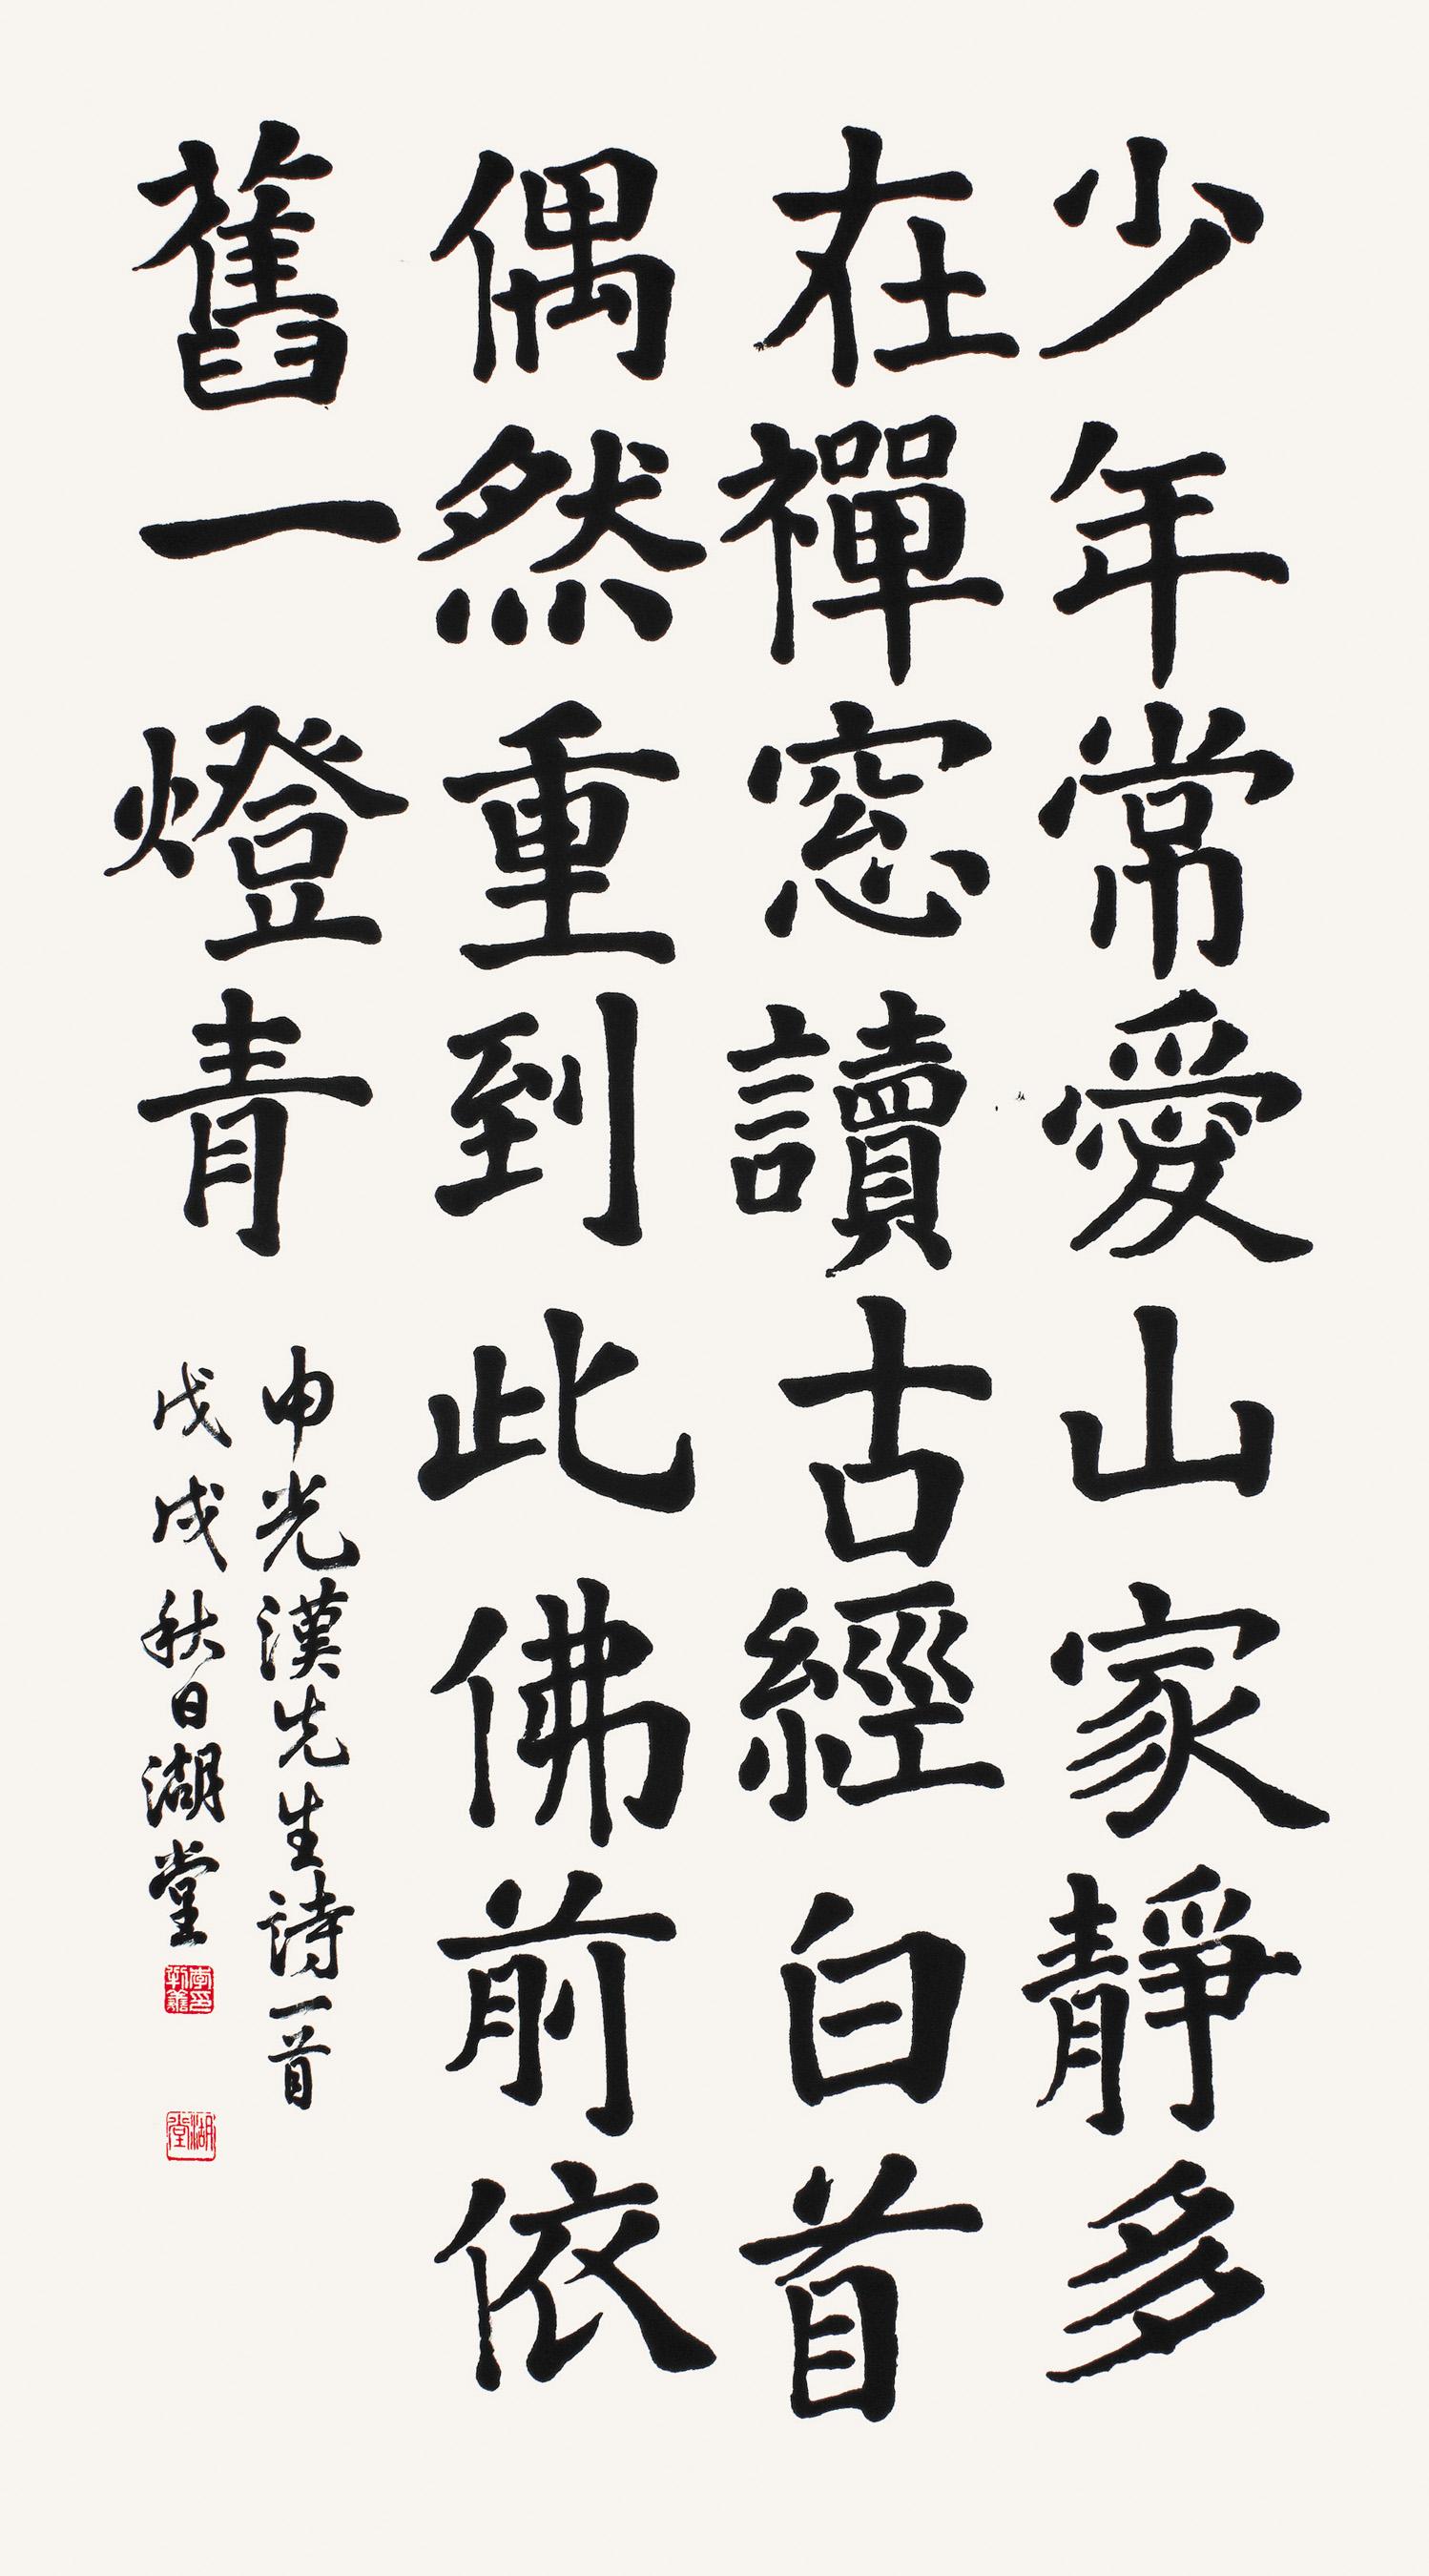 少年常愛山家靜多
在禪窓讀古經白首
偶然重到此佛前依
舊一燈青
申光漢先生詩一首
戊戌秋日湖堂
湖堂